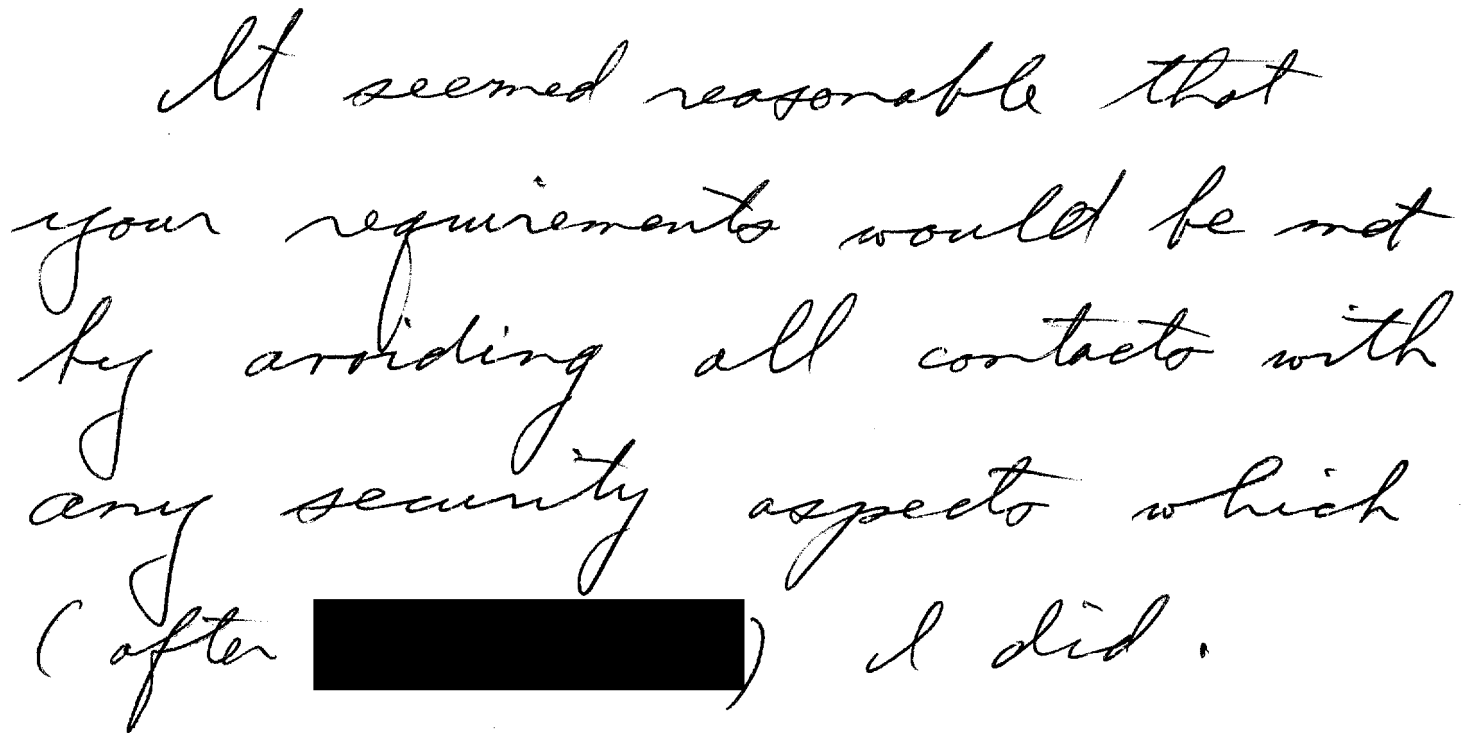 It seemed reasonable that
your requirements would be met
by avoiding all contacts with
any security aspects which
(after ) I did.